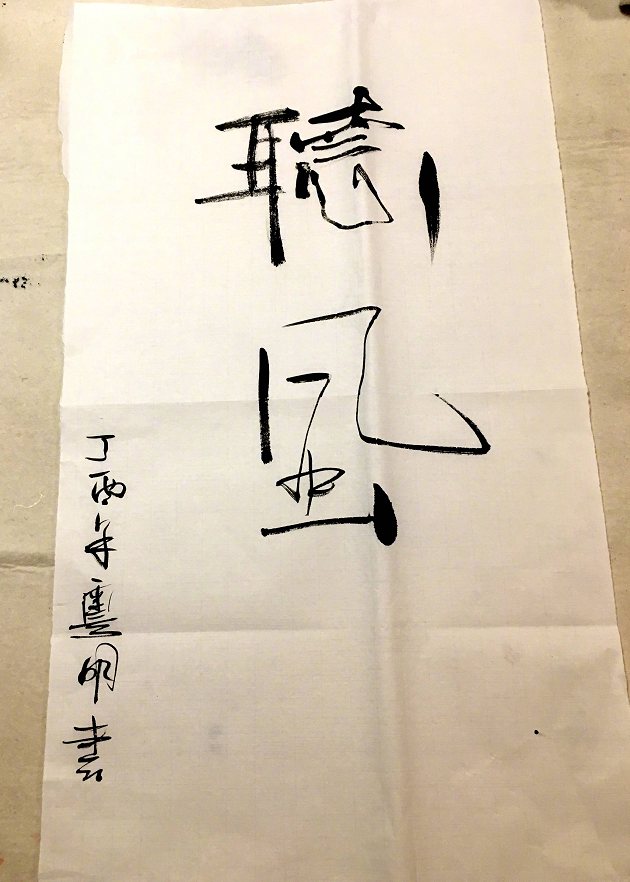 聽風
丁酉年豐明書